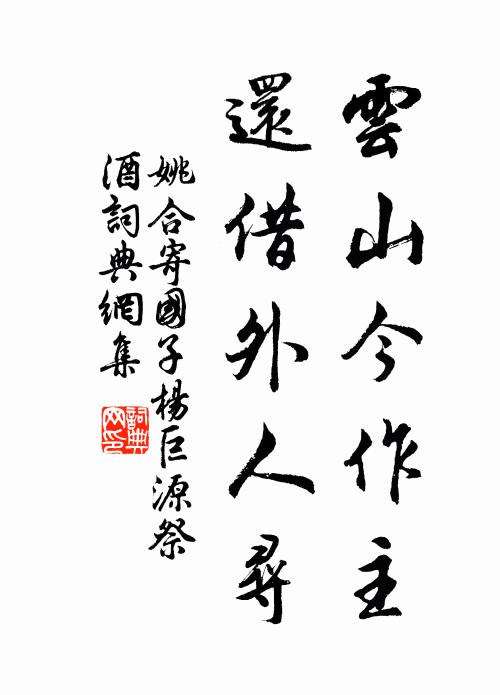 雲山今作主
還借外人尋
姚合寄國子楊巨源祭
酒詞典網集
詞典
网印